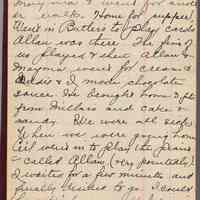 Mayme & I went for another
walk. Home for supper.
Went in Butlers to play cards
Allan was there. The five of
us played & then Allan &
Mayme went for cream &
Susie & I made chocolate
sauce. We bought home 3 pt
from Millers and cake &
candy. We were all sick.
When we were going home
Ceil went in to play the piano
& called Allan (very pointedly).
I waited for a few minutes and
finally decided to go. I could